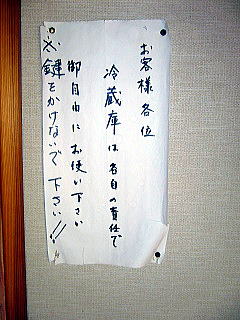 お客様各位
冷蔵庫は各自の責任で
御自由にお使い下さい
※鍵をかけないで下さい!!